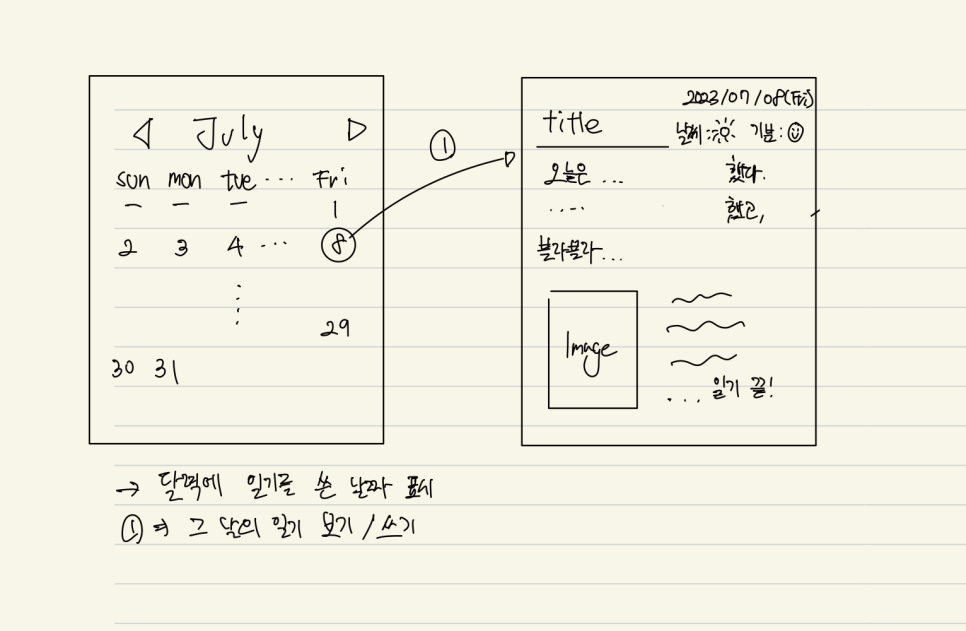 ◁ July ▷
sun mon tue ... Fri
1
2 3 4 ... 8
29
30 31
①
2023/07/08(Fri)
title
날씨: 기분:
오늘은 ... 했다.
..... 했고,
블라블라...
Image
... 일기 끝!
→ 달력에 일기를 쓴 날짜 표시
① ⇒ 그 날의 일기 보기 / 쓰기